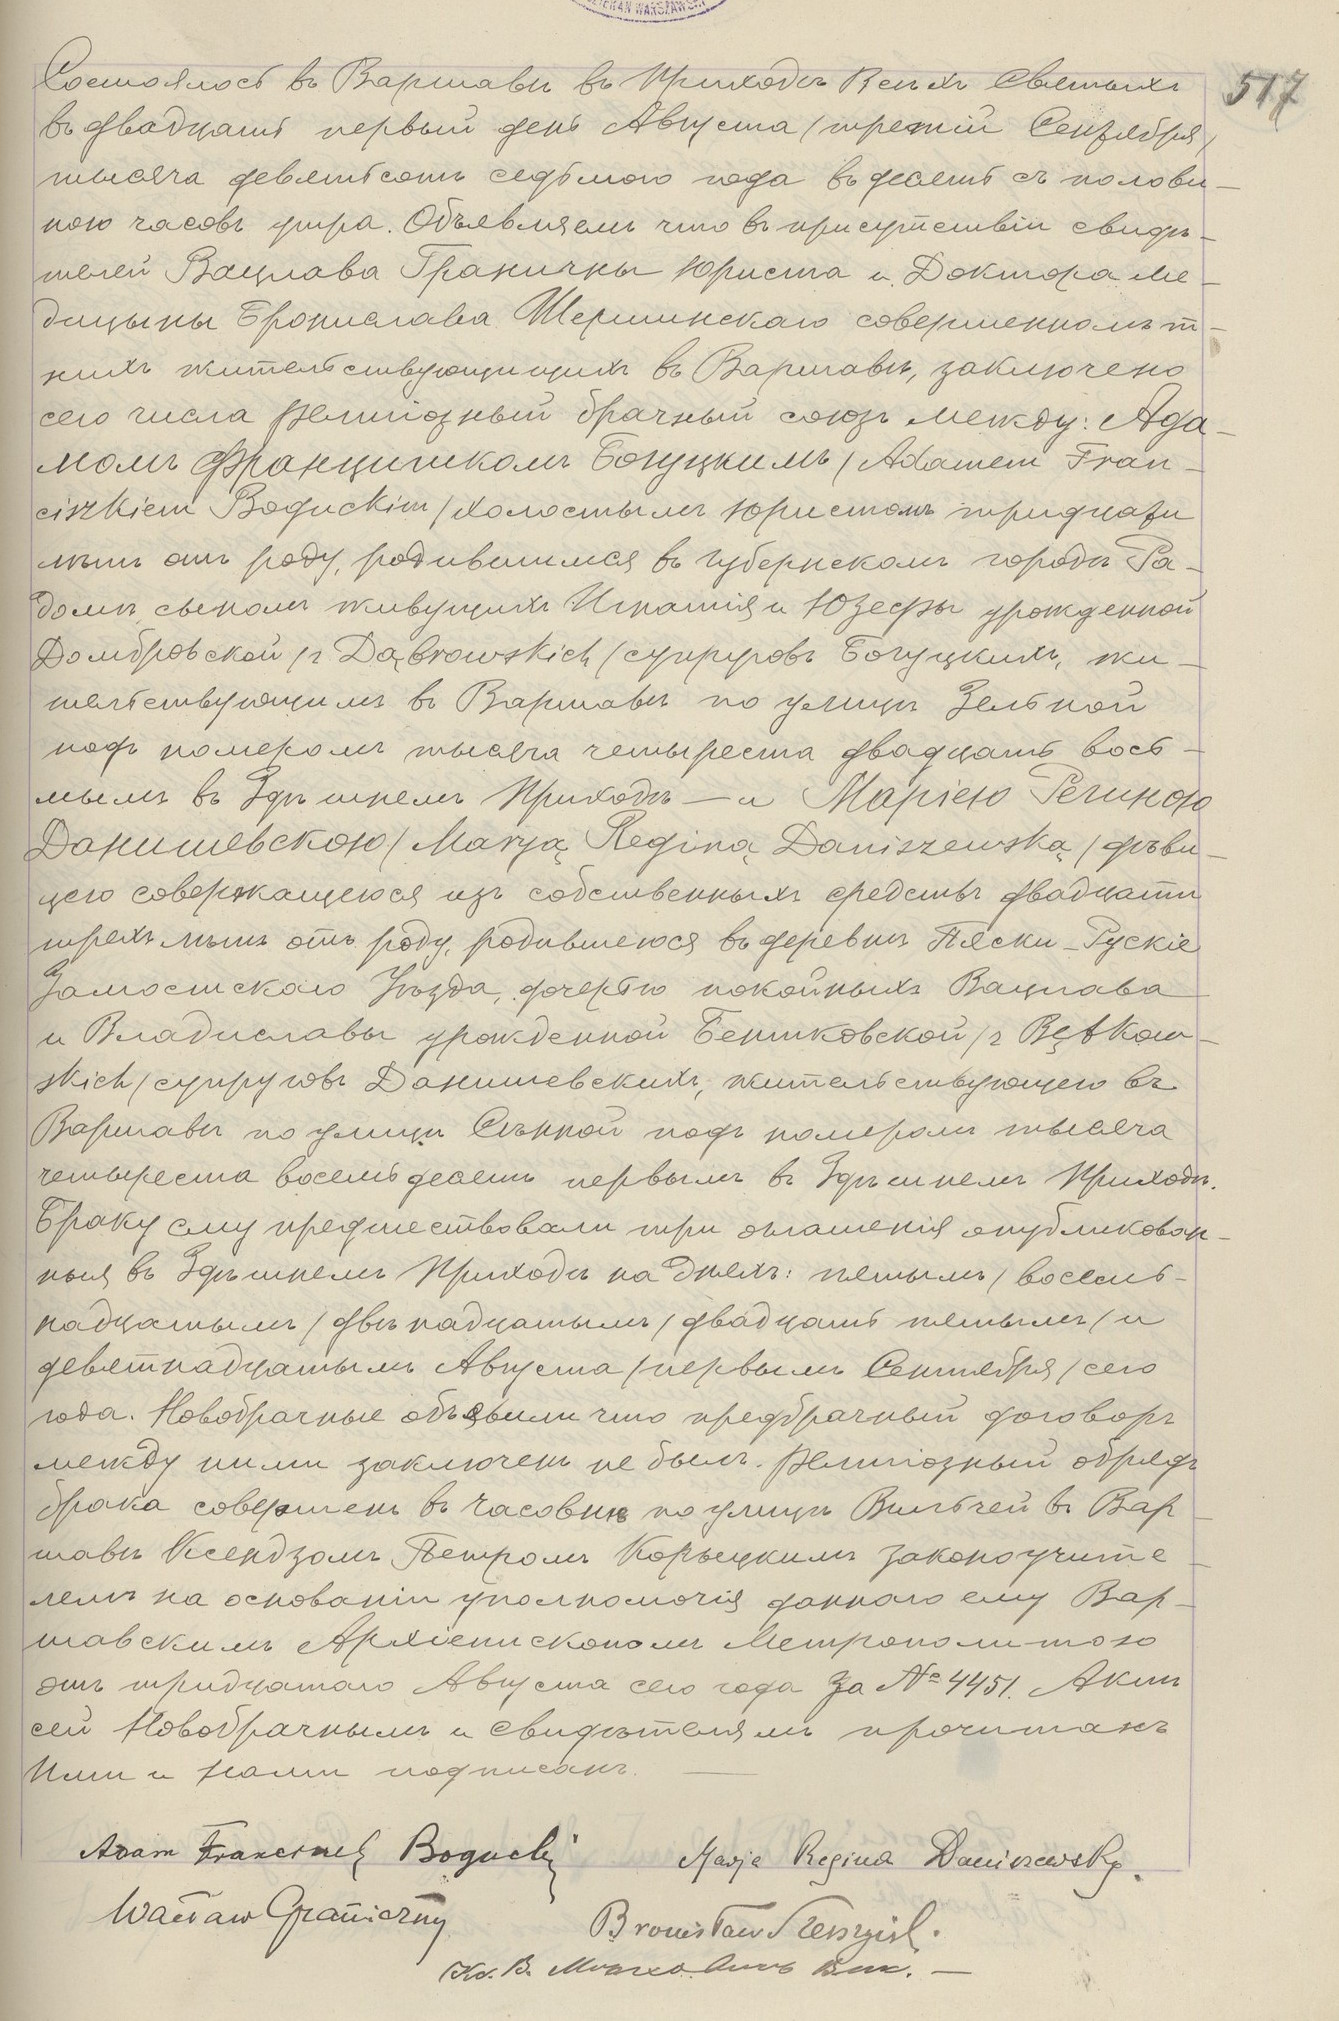 WARSZAWSKI
517
Состоялось въ Варшавѣ въ Приходѣ Всѣхъ Святыхъ
въ двадцать первый день Августа /третій Сентября/
тысяча девятьсотъ седьмого года въ десять съ полови-
ною часовъ утра. Объявляемъ что въ присутствіи свидѣ-
телей Вацлава Граничны Юриста и Доктора ме-
дицыны Бронислава Шершинскаго совершеннолѣт-
нихъ жительствующищихъ въ Варшавѣ, заключено
сего числа религіозный брачный союзъ между: Ада-
момъ Францишкомъ Богуцкимъ /Adamem Fran-
ciszkiem Boguckim/ холостымъ Юристомъ тридцати
лѣтъ отъ роду, родившимся въ губернскомъ городѣ Ра-
домѣ, сыномъ живущихъ Игнатія и Юзефы урожденной
Домбровской /z Dąbrowskich/ супруговъ Богуцкихъ, жи-
тельствующимъ въ Варшавѣ по улицѣ Зельной
подъ номеромъ тысяча четыреста двадцать вось-
мымъ въ Здѣшнемъ Приходѣ — и Маріею Региною
Данишевскою /Maryą Reginą Daniszewską/ дѣви-
цею совержащеюся изъ собственныхъ средствъ двадцати
трехъ лѣтъ отъ роду, родившеюся въ деревнѣ Пяски-Рускіе
Замостскаго Уѣзда, дочерью покойныхъ Вацлава
и Владиславы урожденной Бентковской /z Bętkow-
skich/ супруговъ Данишевскихъ, жительствующею въ
Варшавѣ по улицѣ Сѣнной подъ номеромъ тысяча
четыреста восемьдесятъ первымъ въ Здѣшнемъ Приходѣ.
Браку сему предшествовали три оглашенія опубликован-
ныя въ Здѣшнемъ Приходѣ на дняхъ: пятымъ /восемь-
надцатымъ/ двѣнадцатымъ /двадцать пятымъ/ и
девятнадцатымъ Августа /первымъ Сентября/ сего
года. Новобрачные объявили что предбрачный договоръ
между ними заключенъ не былъ. Религіозный обрядъ
брака совершенъ въ часовнѣ по улицѣ Вильчей въ Вар-
шавѣ Ксендзомъ Петромъ Корыцкимъ законоучите-
лемъ на основаніи уполномочія даннаго ему Вар-
шавскимъ Архіепископомъ Метрополитою
отъ тридцатаго Августа сего года за № 4451. Актъ
сей Новобрачнымъ и свидѣтелямъ прочитанъ
Ими и Нами подписанъ. —
Adam Franciszek Bogucki Marja Regina Daniszewska.
Wacław Graniczny
Bronisław
Кс. В.